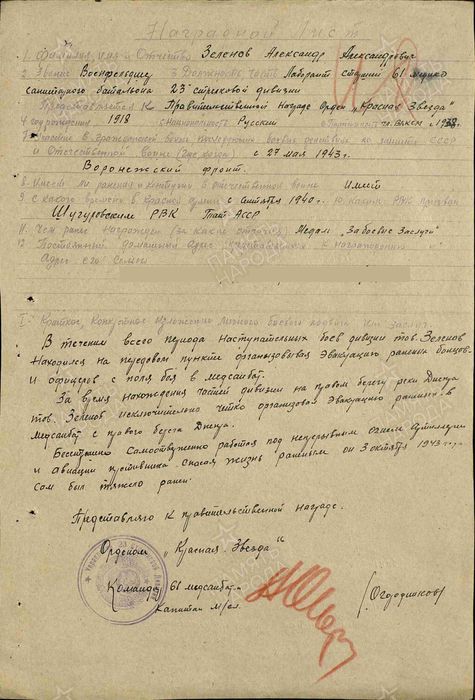 Наградной лист
1. Фамилия, имя и Отчество Зеленов Александр Александрович
2 Звание Военфельдшер 3 Должность часть Лаборант 61 медико
санитарного баталиона 23й стрелковой дивизии
Представляется к Правительственной Награде Орден „Красная Звезда“
4 год рождения 1918 5 национальность Русский 6 Партийность чл. ВЛКСМ с
7 Участие в гражданской войне последующих боевых действиях по защите СССР
и Отечественной войне (где когда) с 27 мая 1943 г.
Воронежский фронт.
8 Имеет ли ранения и контузии в отечественной войне Имеет
9 с какого времени в красной армии с октября 1940 г. 10 каким РВК призван
Шугуровским РВК ТатАССР
11. Чем ранее награжден (за какие отличия) Медаль „За боевые заслуги“
12 Постоянный домашний Адрес представляемого к награждению и
Адрес его Семьи
I. Краткое, конкретное изложение личного боевого подвига или заслуг
В течении всего периода наступательных боев дивизии тов. Зеленов
находился на передовом пункте организовывая Эвакуацию раненых бойцов
и офицеров с поля боя в медсанбат.
За время нахождения частей дивизии на правом берегу реки Днепра
тов. Зеленов исключительно четко организовал Эвакуацию раненых в
Медсанбат с правого берега Днепра.
Бесстрашно Самоотверженно работая под непрерывным огнем Артиллерии
и авиации противника спасая жизнь раненым он 3 октября 1943 г.,
сам был тяжело ранен.
Представляю к правительственной награде.
Орденом „Красная Звезда“
Командир 61 медсанбат
Капитан м/сл. /Огородников/
ПАМЯТЬ НАРОДА